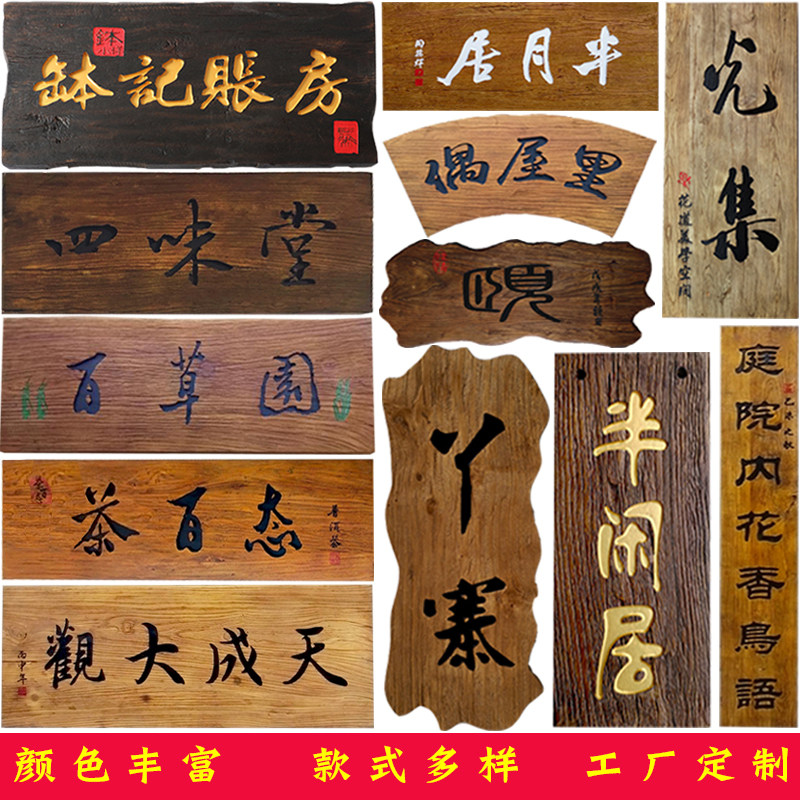 缽記賬房
半月居
光集
花道美學空間
偶屋里
四味堂
頤
百草園
丫寨
半闲居
庭院内花香鳥語
乙未之秋
茶百态
天成大觀
丙申年
颜色丰富 款式多样 工厂定制